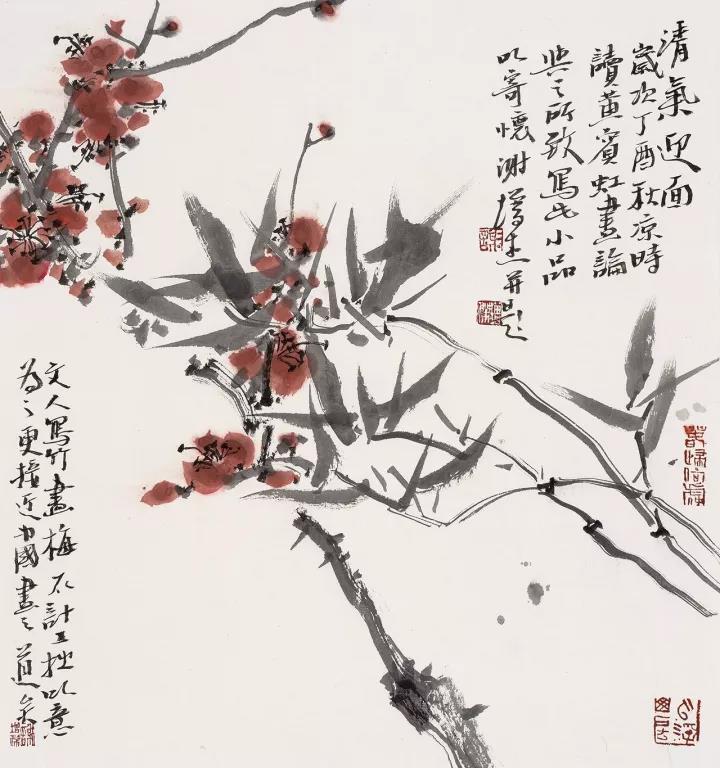 清氣迎面
歲次丁酉秋涼時
讀黃賓虹畫論
興之所致寫此小品
以寄懷谢增杰并题
文人寫竹畫梅不計工拙以意
為之更接近中國畫之道矣